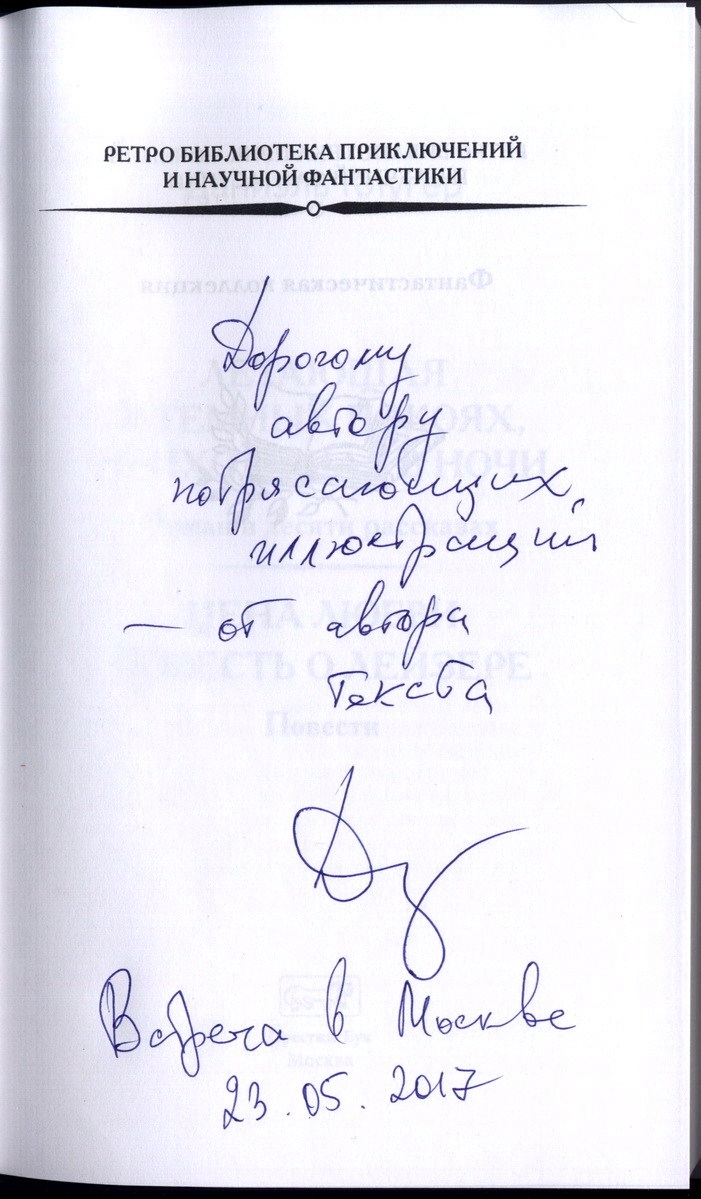 РЕТРО БИБЛИОТЕКА ПРИКЛЮЧЕНИЙ
И НАУЧНОЙ ФАНТАСТИКИ
Фантастическая коллекция
Дорогому
автору
потрясающих
иллюстраций
— от автора
текста
Повести
Встреча в Москве
Москва
23.05.2017